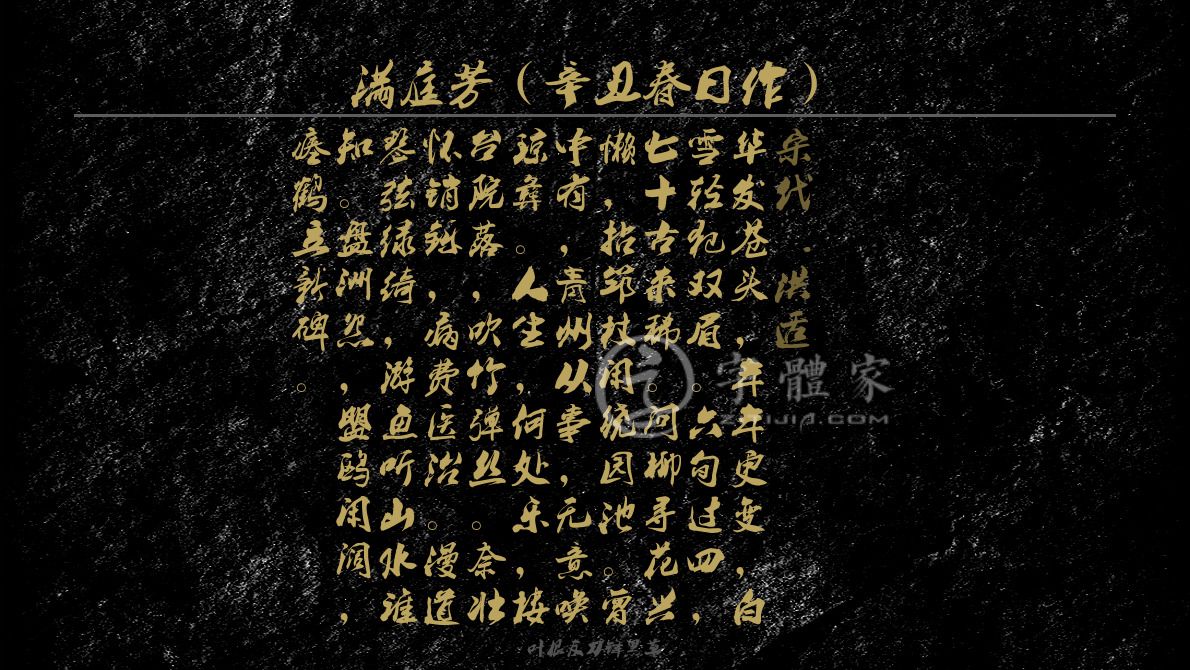 满庭芳（辛丑春日作）
宋代.洪适
华发苍头，年年更变，白
雪轻犯双眉。六旬过四，
七十古来稀。问柳寻花兴
懒，拈筇枝闲绕园池。尊
中有，青州从事，无意唤
琼彝。人生，何处乐，楼
台院落，吹竹弹丝。奈壮
怀销铄，病费医治。漫道
琴弦绿绮，游鱼听山水谁
知。盘洲怨，盟鸥闲阔，
瘗鹤立新碑。
字體家
ZITIJIA.COM
叶根友刀锋黑草